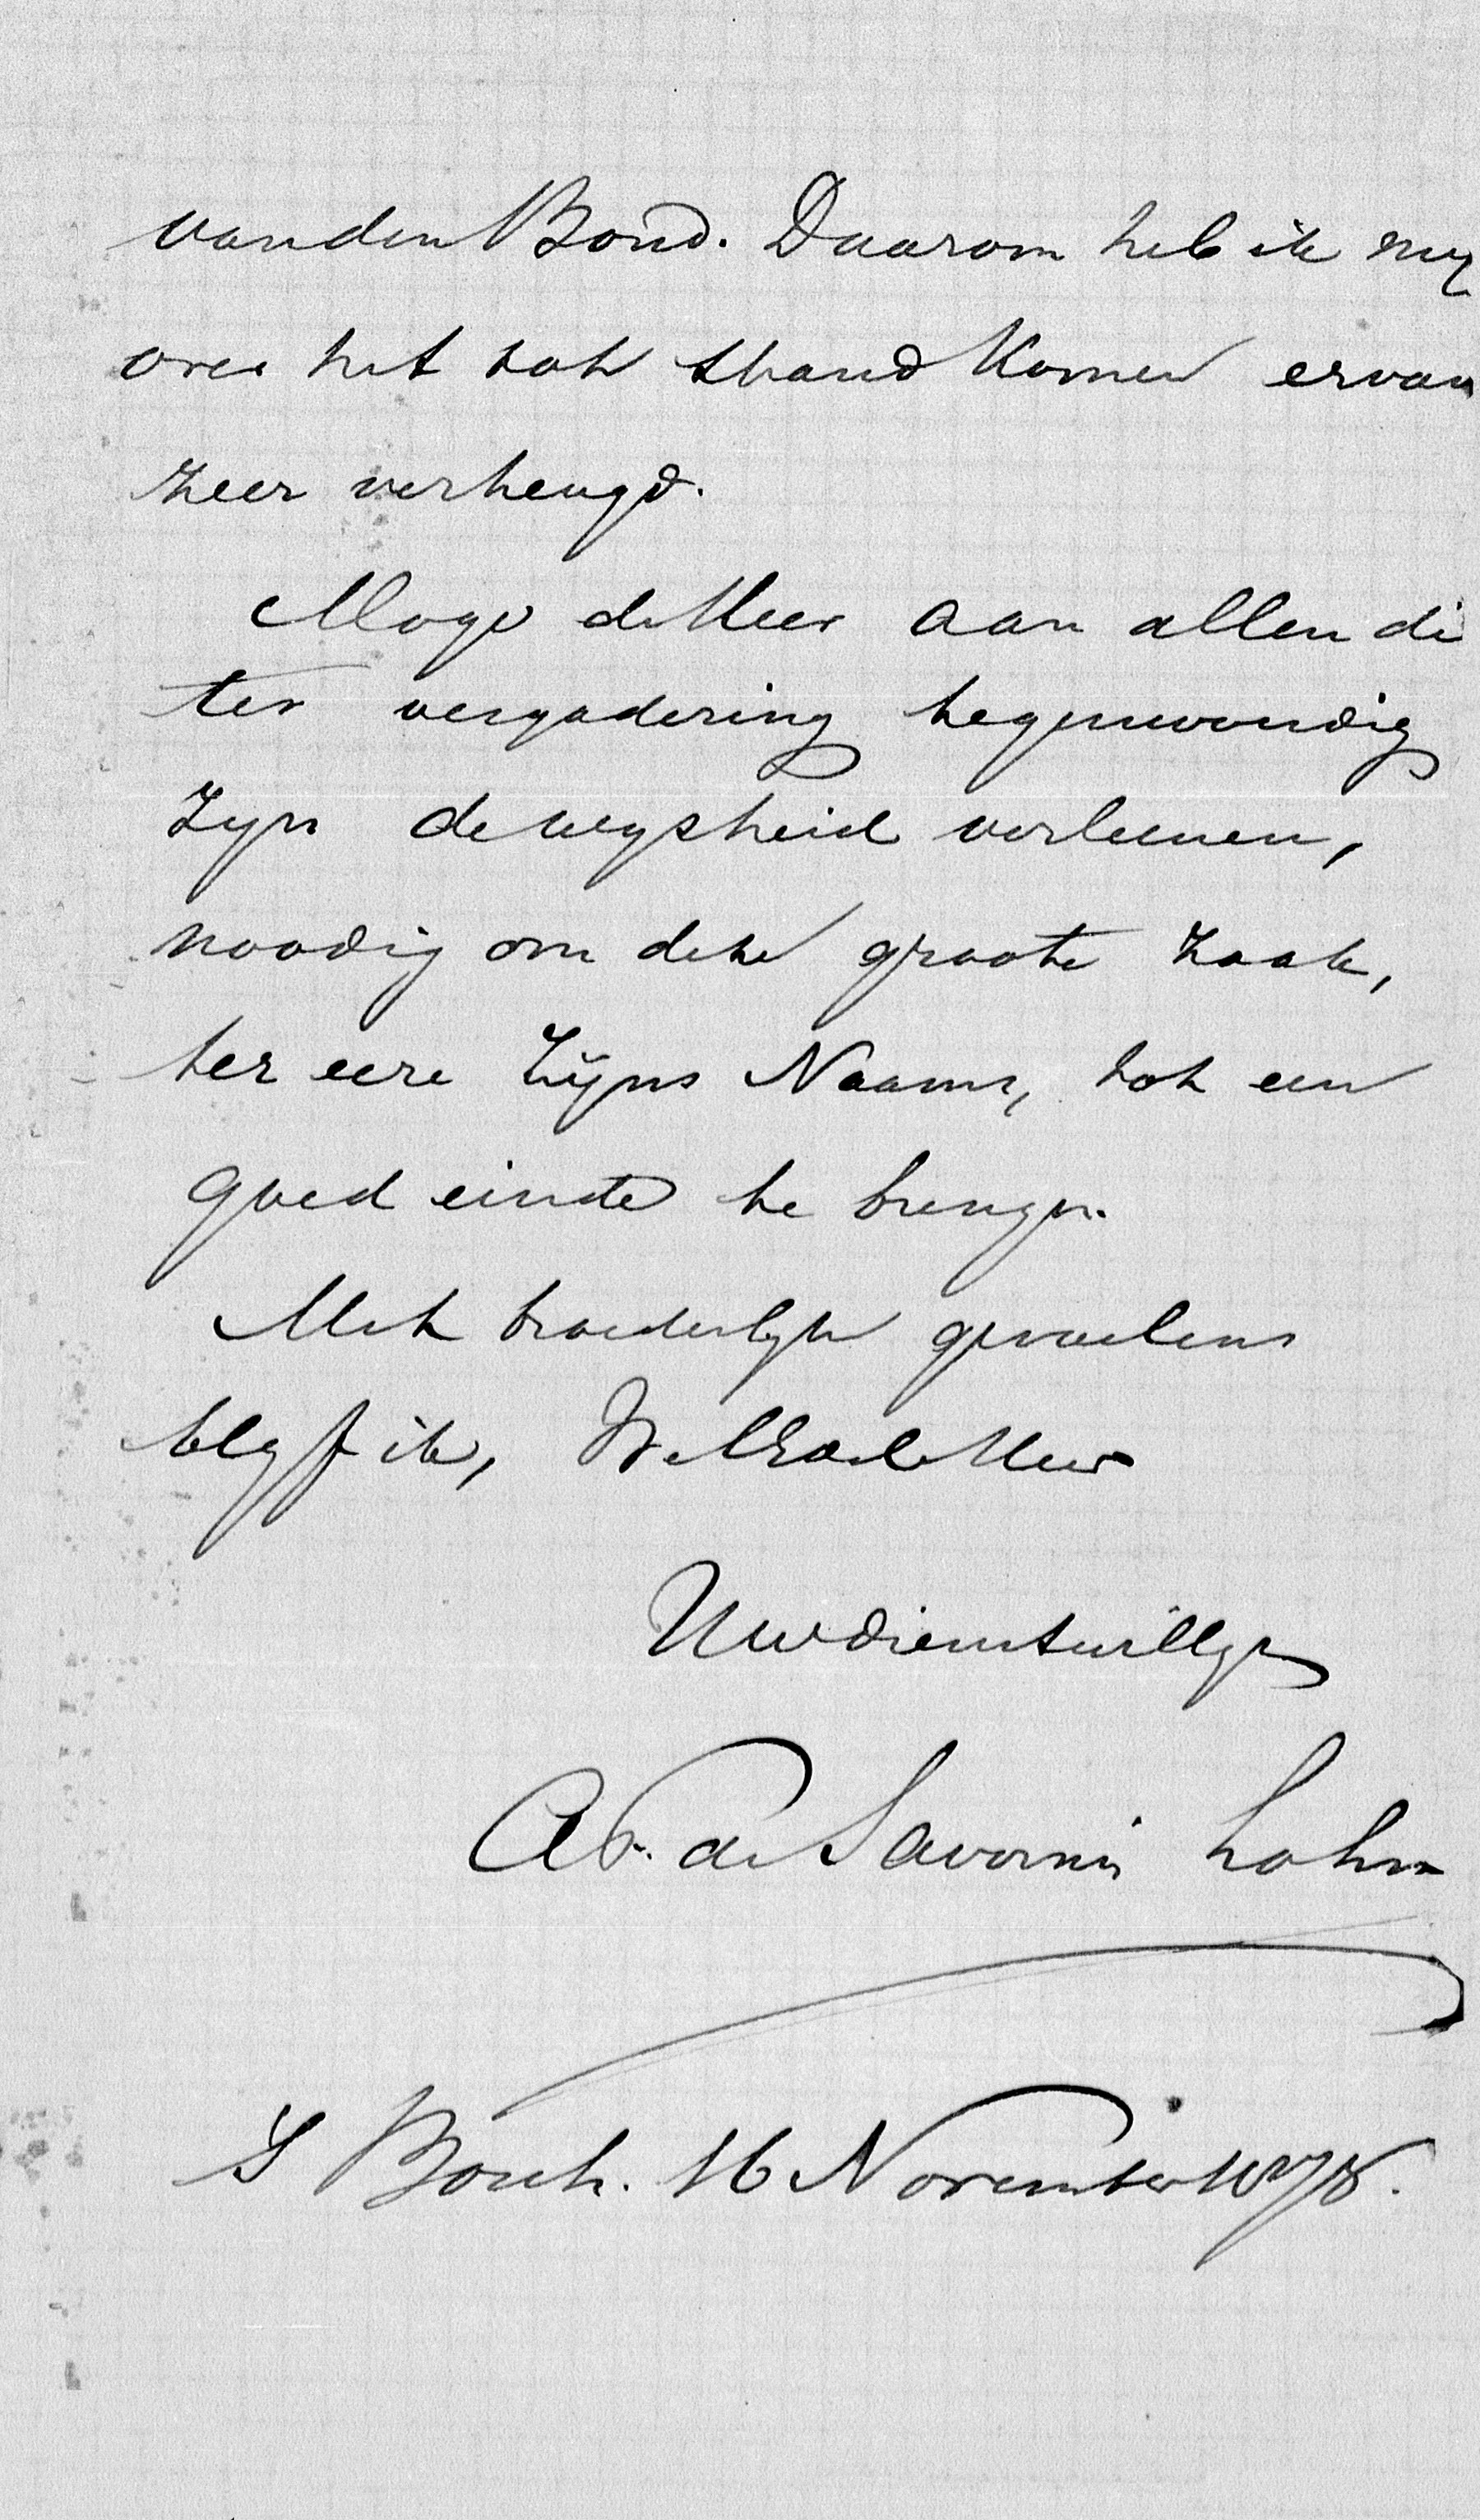 van den Bond. Daarom heb ik my
over het tot stand komen ervan
zeer verheugd.
Moge de Heer aan allen die
ter vergadering tegenwoordig
zyn de wysheid verleenen,
noodig om deze groote zaak,
ter eere Zijns Naams, tot een
goed einde te brengen.
Met broederlyke gevoelens
blyf ik, WelEdele Heer
Uwdienstwillige
A F. de Savornin Lohman
S Bosch. 16 November 1878.